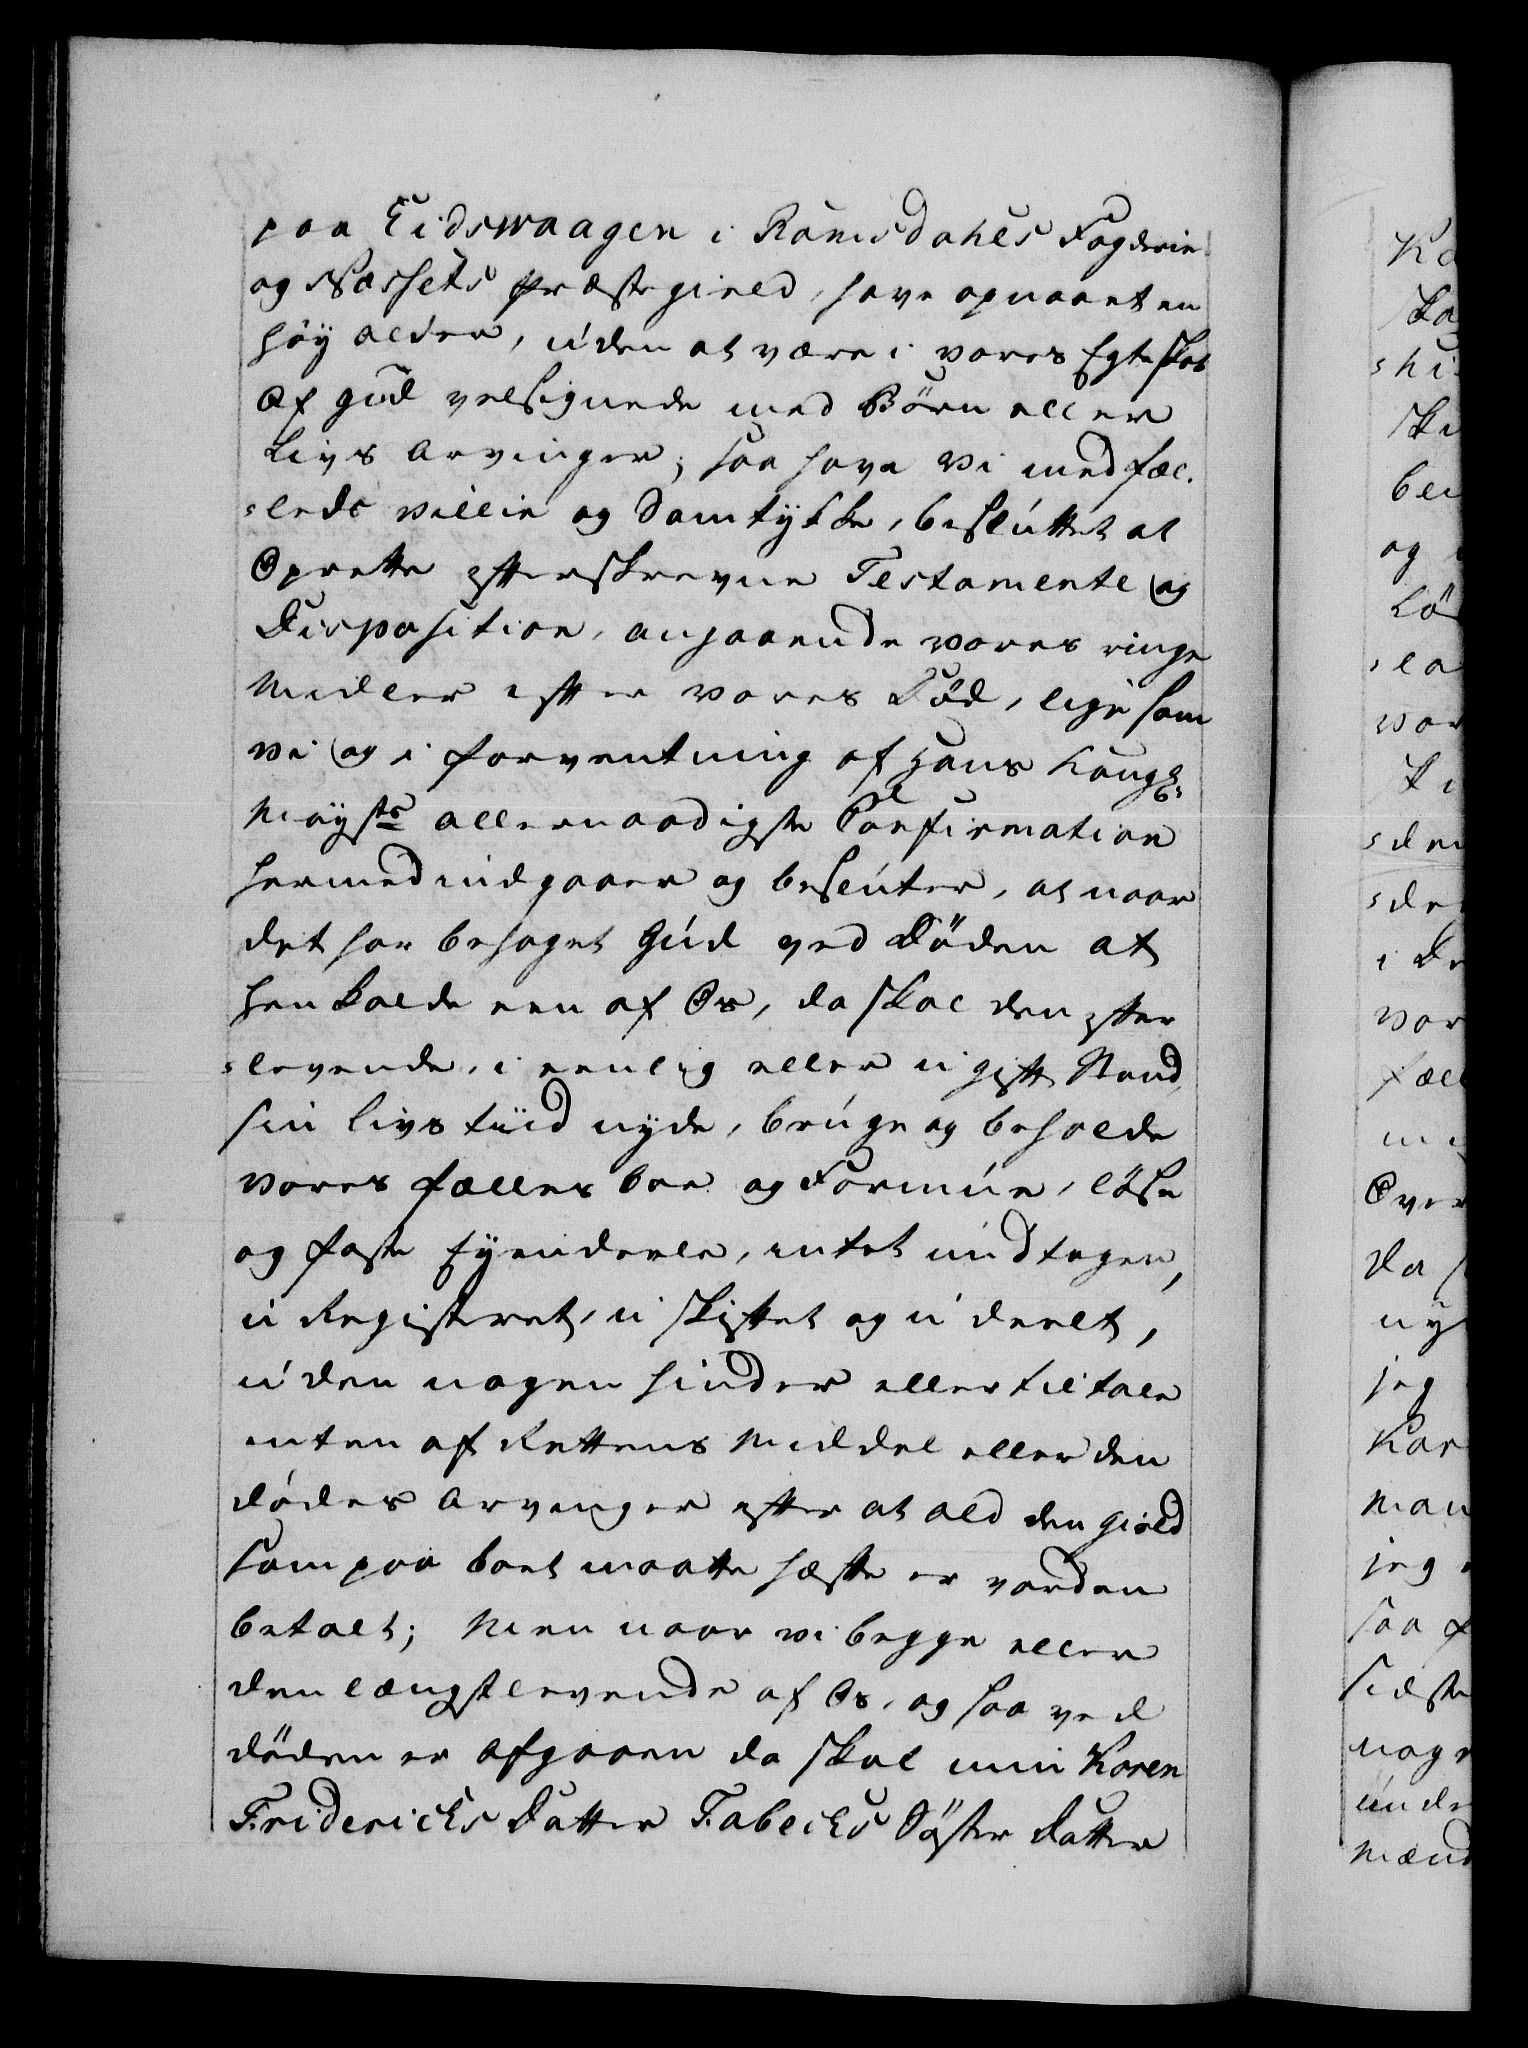 paa Eidswaagen i Romsdahls Fogderie
og Næssets Præstegield, have opnaaet en
höy alder, uden at være i vores Egteskab
Af Gud velsignede med Börn eller
Livs Arvinger; saa have Vi med fæl-
leds villie og Samtykke, besluttet at
Oprette efterskrevne Testamente og
Disposition, angaaende vores ringe
Midler efter vores Död, lige som
vi og i forventning af Hans Kongl:
Mayts allernaadigste Confirmation
hermed indgaaer og besluter, at naar
det har behaget Gud ved Döden at
henkalde een af Os, da skal den efter
levende, i eenlig eller ugift Stand,
sin livs tiid nyde, bruge og beholde
vores fælles Boe og Formue, löse
og faste Eyendeele, intet undtagen,
u Registeret, u skiftet og u deelt,
uden nogen hinder eller tiltale
enten af Rettens Middel eller den
dödes Arvinger efter at ald den Gield
som paa boet maatte hæfte er vorden
betalt; Men naar vi begge eller
den længstlevende af Os, og saa ved
döden er Afgaaen da skal min Karen
Fridericks Datter Fabecks Söster Datter
Ko
og
vor
vor
Over
da
ny
jeg
Kar
man
jeg
saa
sidste
unde
mænd